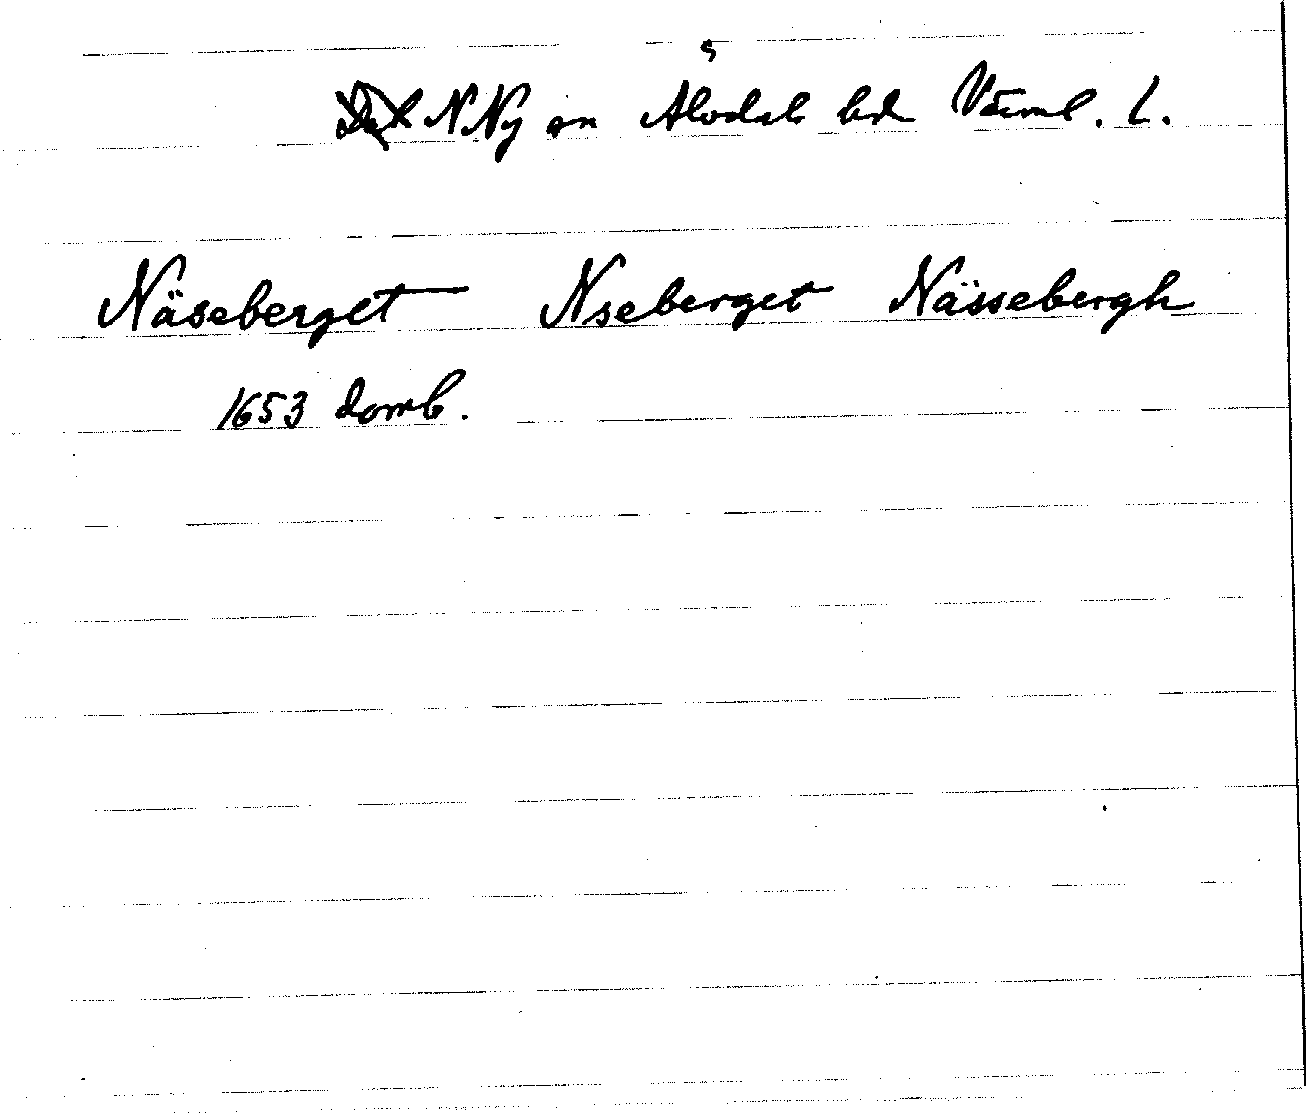 N Ny sn Älvdals hd Värml. L.
Näseberget Nseberget Nässebergh
1653 domb.